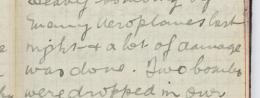 Heavy bombing by
Enemy Aeroplanes last
night & a lot of damage
was done. Two bombs
were dropped in our